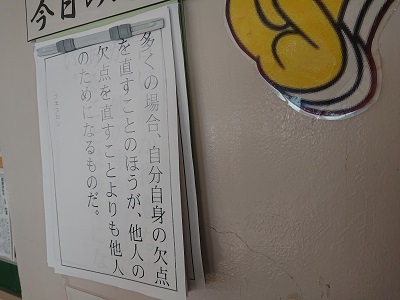 今日の
多くの場合、自分自身の欠点
を直すことのほうが、他人の
欠点を直すことよりも他人
のためになるものだ。